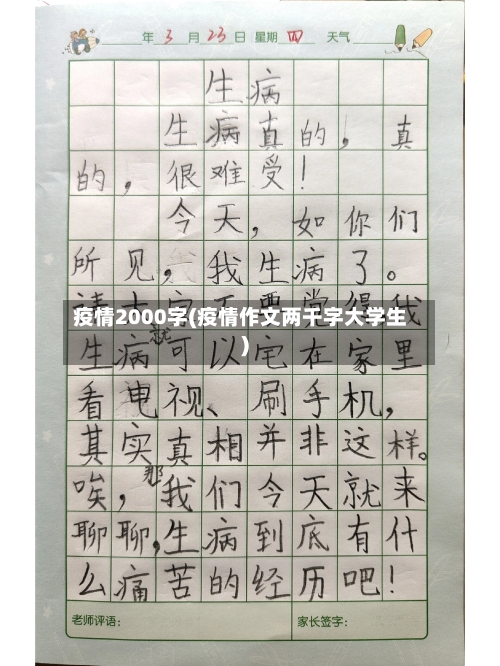 年 3 月 23 日 星期 四 天气
生病
生病真的，真
的，很难受！
今天，如你们
所见，我生病了。
请大家不要觉得我
疫情2000字(疫情作文两千字大学生
)
生病就可以宅在家里
看电视、刷手机，
其实真相并非这样。
唉，那我们今天就来
聊聊，生病到底有什
么痛苦的经历吧！
老师评语： 家长签字：